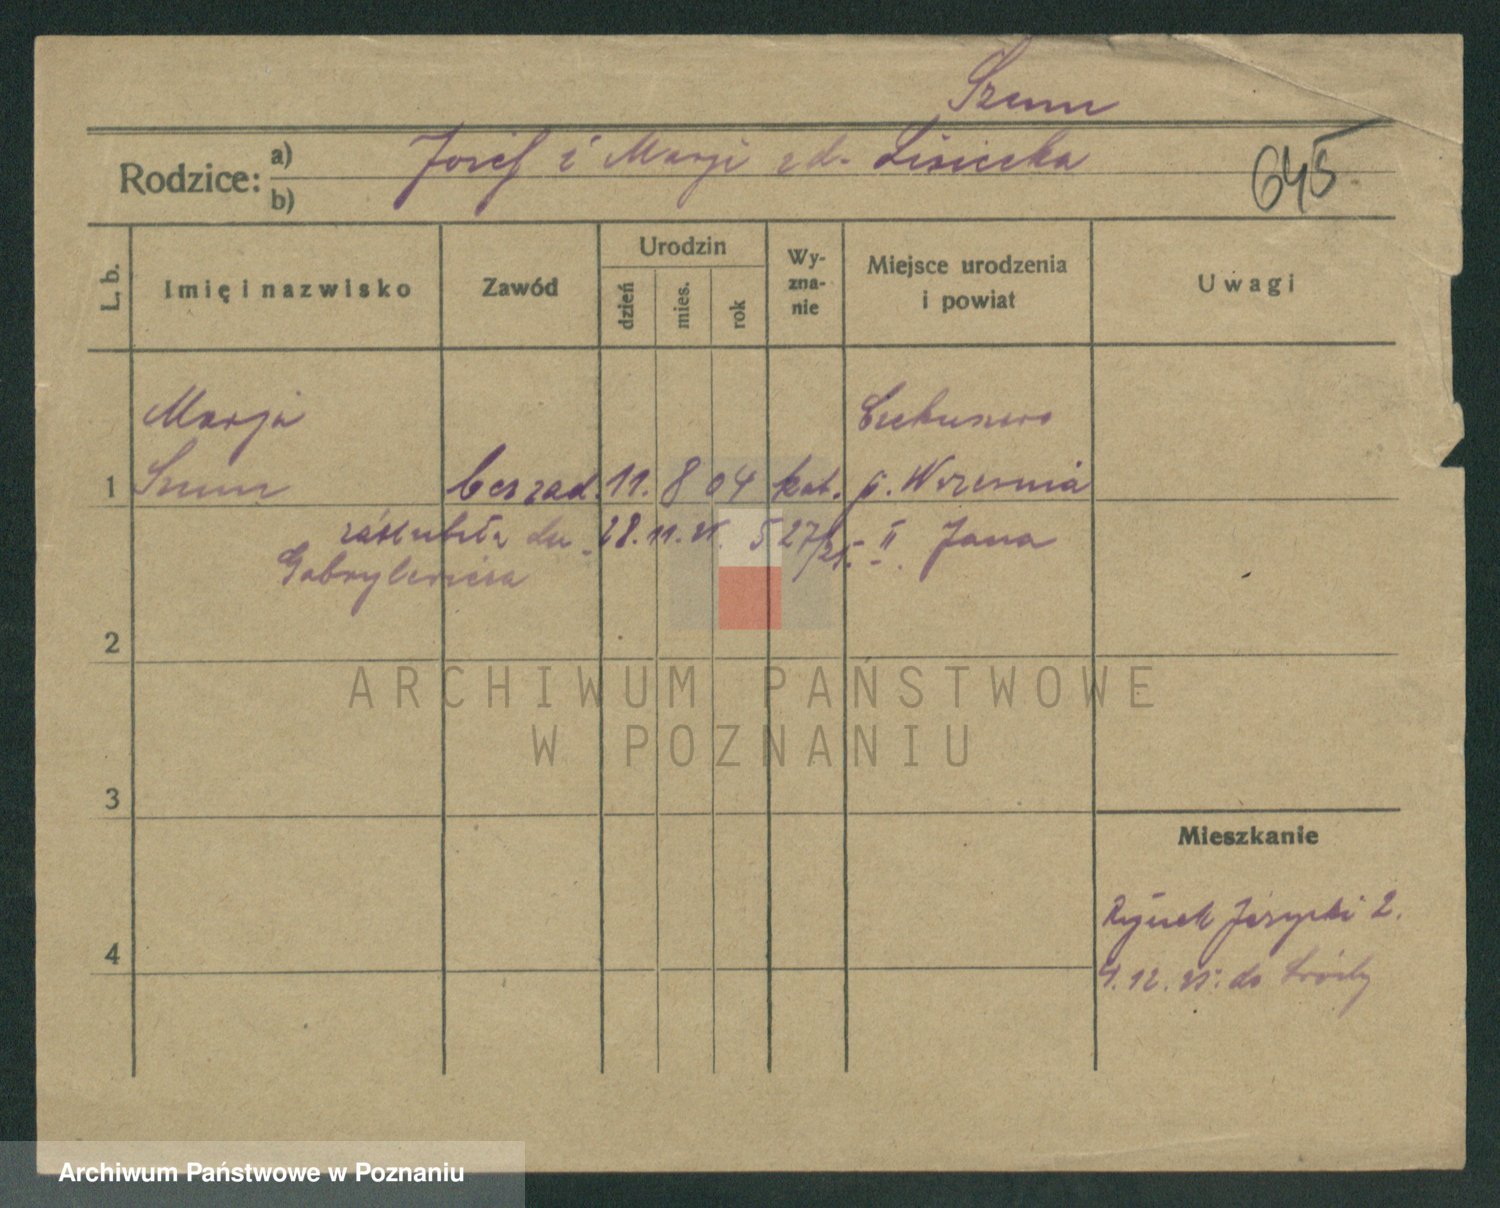 Szum
Rodzice: a) Josef i Marji zd. Lisiecka
b)
645
L. b.
Imię i nazwisko
Zawód
Urodzin
dzień
mies.
rok
Wy-
zna-
nie
Miejsce urodzenia
i powiat
Uwagi
Marja
1 Szum bez zad. 11. 8 04 kat. p. Września
zaślubiła dn. 28. 11. 25. 527/25. II Jana
Gabrylewicza
2
3
4
Mieszkanie
Rynek Jeżycki 2.
9. 12. 25. do Środy
ARCHIWUM PAŃSTWOWE
W POZNANIU
Archiwum Państwowe w Poznaniu